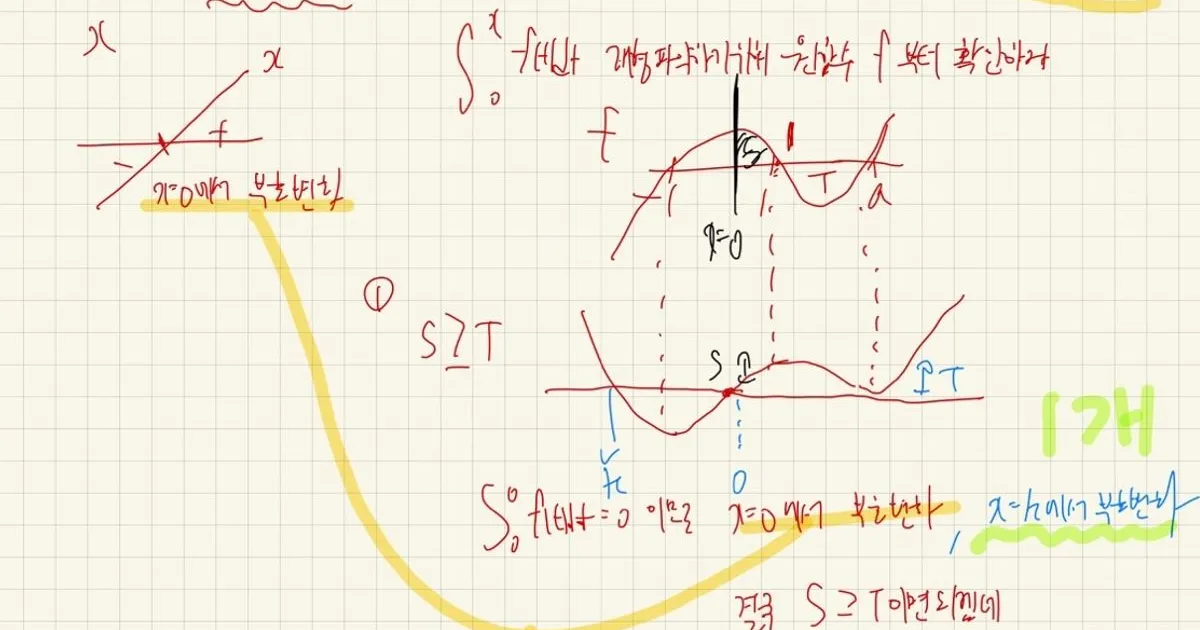 x
x
f
x=0에서 부호변화
∫₀ˣ f(t)dt 개형파악하기위해 원함수 f 부터 확인하랑
f
-1
S
1
1
T
a
x=0
①
S ≥ T
S
T
k
0
1개
∫₀⁰ f(t)dt = 0 이므로 x=0에서 부호변화, x=k에서 부호변화
결국 S ≥ T이면되겠네